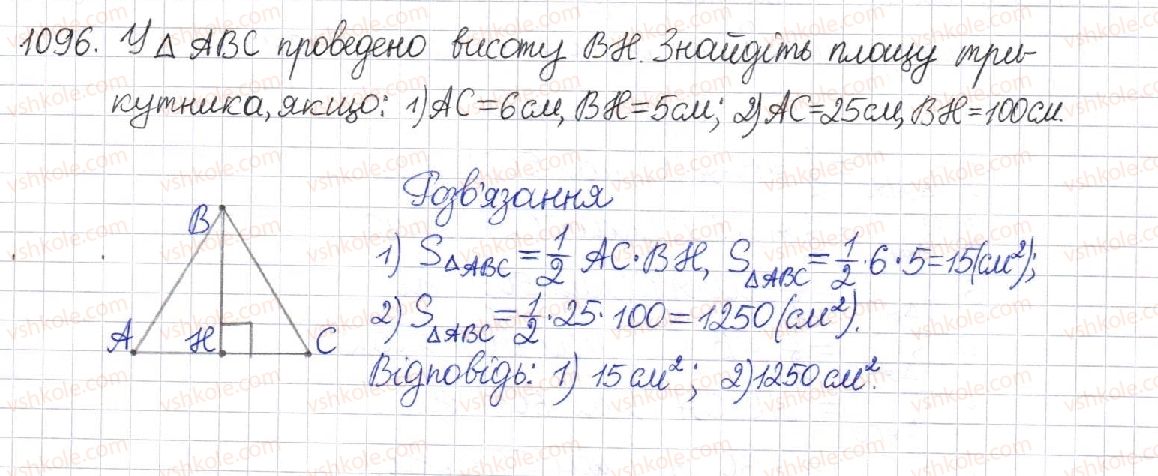 1096. У △ ABC проведено висоту BH. Знайдіть площу три-
кутника, якщо: 1) AC=6см, BH=5см; 2) AC=25см, BH=100см.
Розв'язання
1) S△ABC = 1/2 AC·BH, S△ABC = 1/2·6·5=15(см²);
2) S△ABC = 1/2·25·100=1250(см²).
Відповідь: 1) 15см²; 2) 1250см².
B
A H C